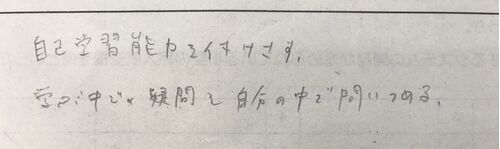 自己学習能力を付けさす。
学ぶ中での疑問を自分の中で問いつめる。